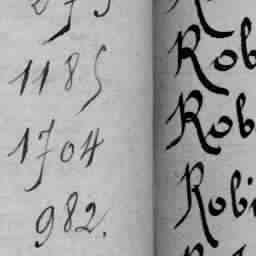 1185
1704
982.
Rob
Rob
Robi